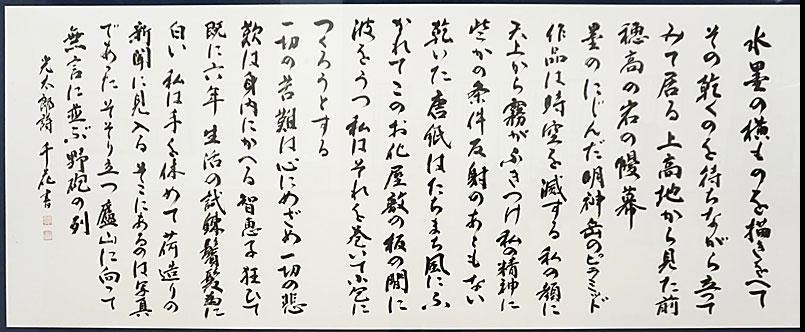 水墨の横ものを描きをへて
その乾くのを待ちながら立つて
みて居る 上高地から見た前
穂高の岩の幔幕
墨のにじんだ明神岳のピラミッド
作品は時空を滅する 私の顔に
天上から霧がふきつけ 私の精神に
些かの条件反射のあともない
乾いた唐紙はたちまち風にふ
かれてこのお化屋敷の板の間に
波をうつ 私はそれを巻いて小包に
つくろうとする
一切の苦難は心にめざめ 一切の悲
歎は身内にかへる 智恵子狂ひて
既に六年 生活の試練鬢髪為に
白い 私は手を休めて 荷造りの
新聞に見入る そこにあるのは写真
であった そそり立つ廬山に向つて
無言に並ぶ野砲の列
光太郎詩 千花書